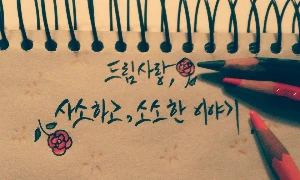 드림사랑,
사소하고, 소소한 이야기